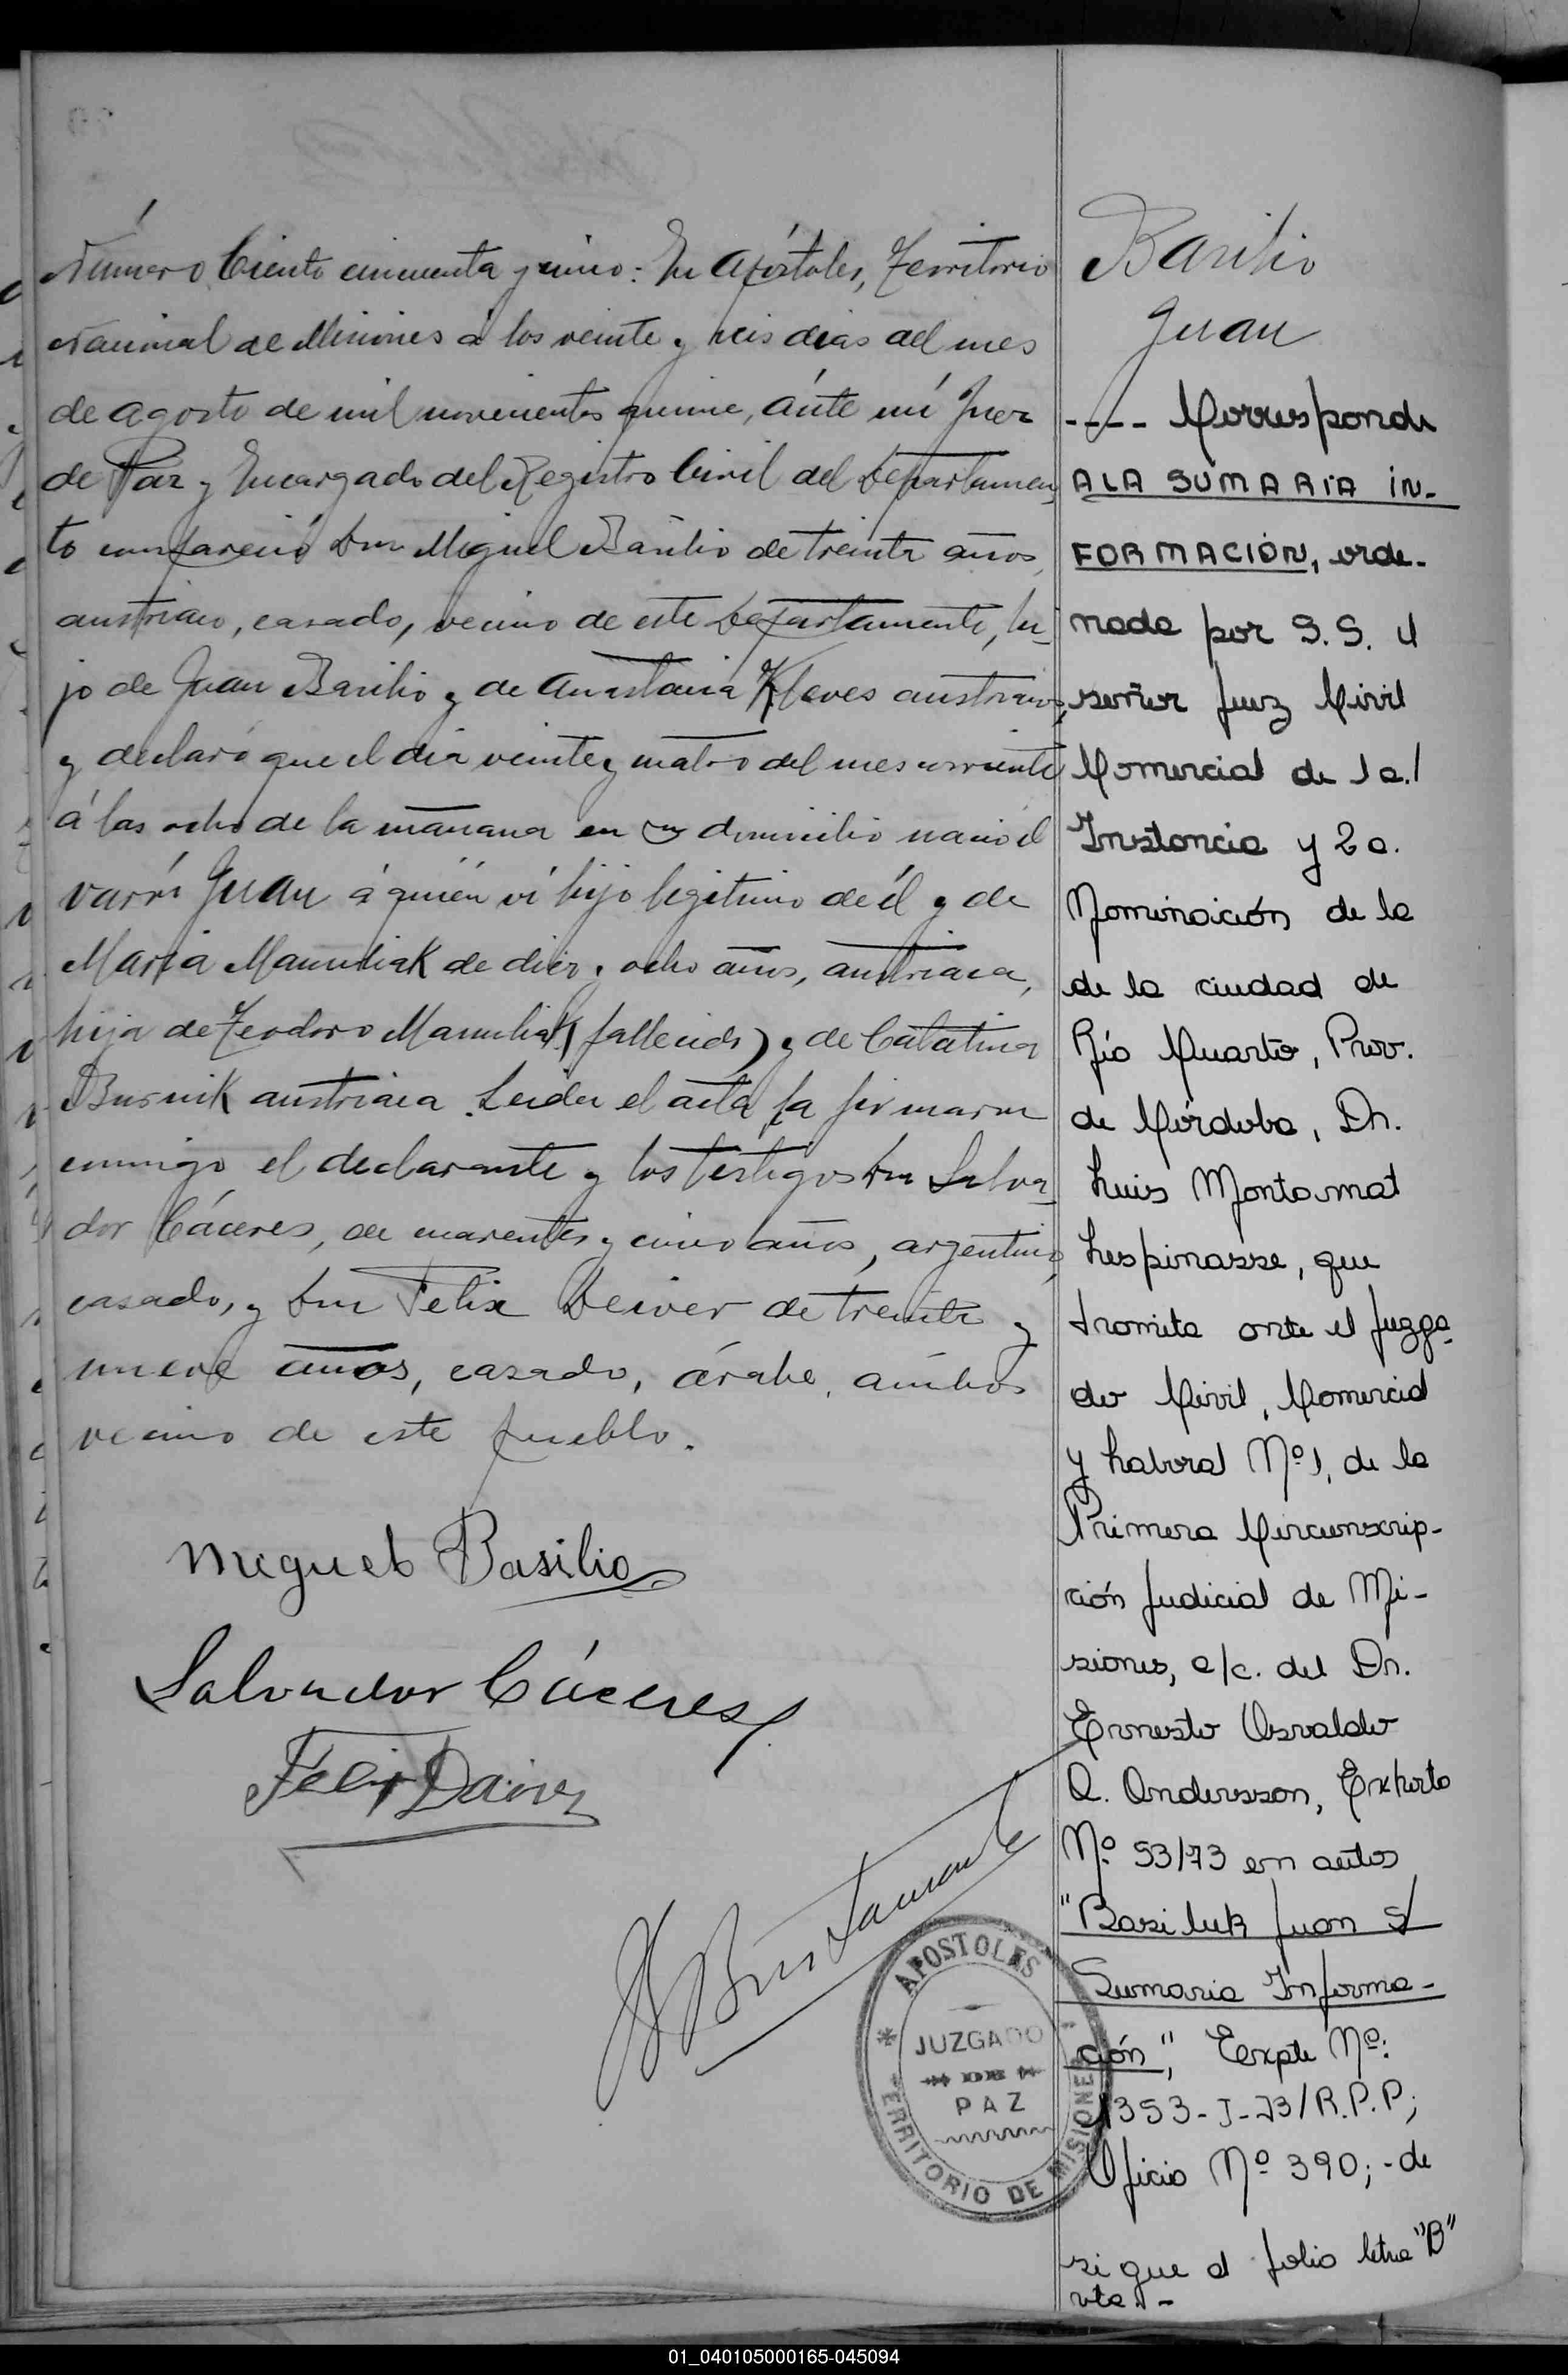 Número Ciento cincuenta y cinco: En Apóstoles, Territorio
Nacional de Misiones á los veinte y seis dias del mes
de Agosto de mil novecientos quince, ánte mí Juez
de Paz y Encargado del Registro Civil del Departamen
to compareció Don Miguel Basilio de treinta años,
austriaco, casado, vecino de este Departamento, hi_
jo de Juan Basilio y de Anastacia Kleves austriacos,
y declaró que el dia veinte y cuatro del mes corriente
á las ocho de la mañana en su domicilio nació el
varón Juan á quién ví hijo legitimo de él y de
Maria Manuliak de diez y ocho años, austriaca,
hija de Teodoro Manuliak (fallecido) y de Catalina
Busnik austriaca. Leida el acta, la firmaron
conmigo el declarante y los testigos Don Salva_
dor Cáceres, de cuarenta y cinco años, argentino,
casado, y Don Felix Deiver de treinta y
nueve años, casado, árabe, ámbos
vecino de este pueblo.
Miguel Basilio
Salvador Cáceres
Felix
Bustamante
APOSTOLES
JUZGADO
DE
PAZ
TERRITORIO DE MISIONES
Basilio
Juan
---- Corresponde
A LA SUMARIA IN-
FORMACIÓN, orde-
nada por S.S. el
señor Juez Civil
Comercial de 1a.
Instancia y 2a.
Nominación de la
de la ciudad de
Río Cuarto, Prov.
de Córdoba, Dr.
Luis Montamat
Lespinasse, que
tramita ante el Juzga-
do Civil, Comercial
y Laboral Nº 1, de la
Primera Circunscrip-
ción Judicial de Mi-
siones, a/c. del Dr.
Ernesto Osvaldo
A. Andersson, Exhorto
Nº 53/73 en autos
"Basiluk Juan s/
Sumaria Informa-
ción", Eexpte Nº:
1353-J-73/R.P.P;
Oficio Nº 390; -de
sigue al folio letra "B"
vta. -
01_040105000165-045094